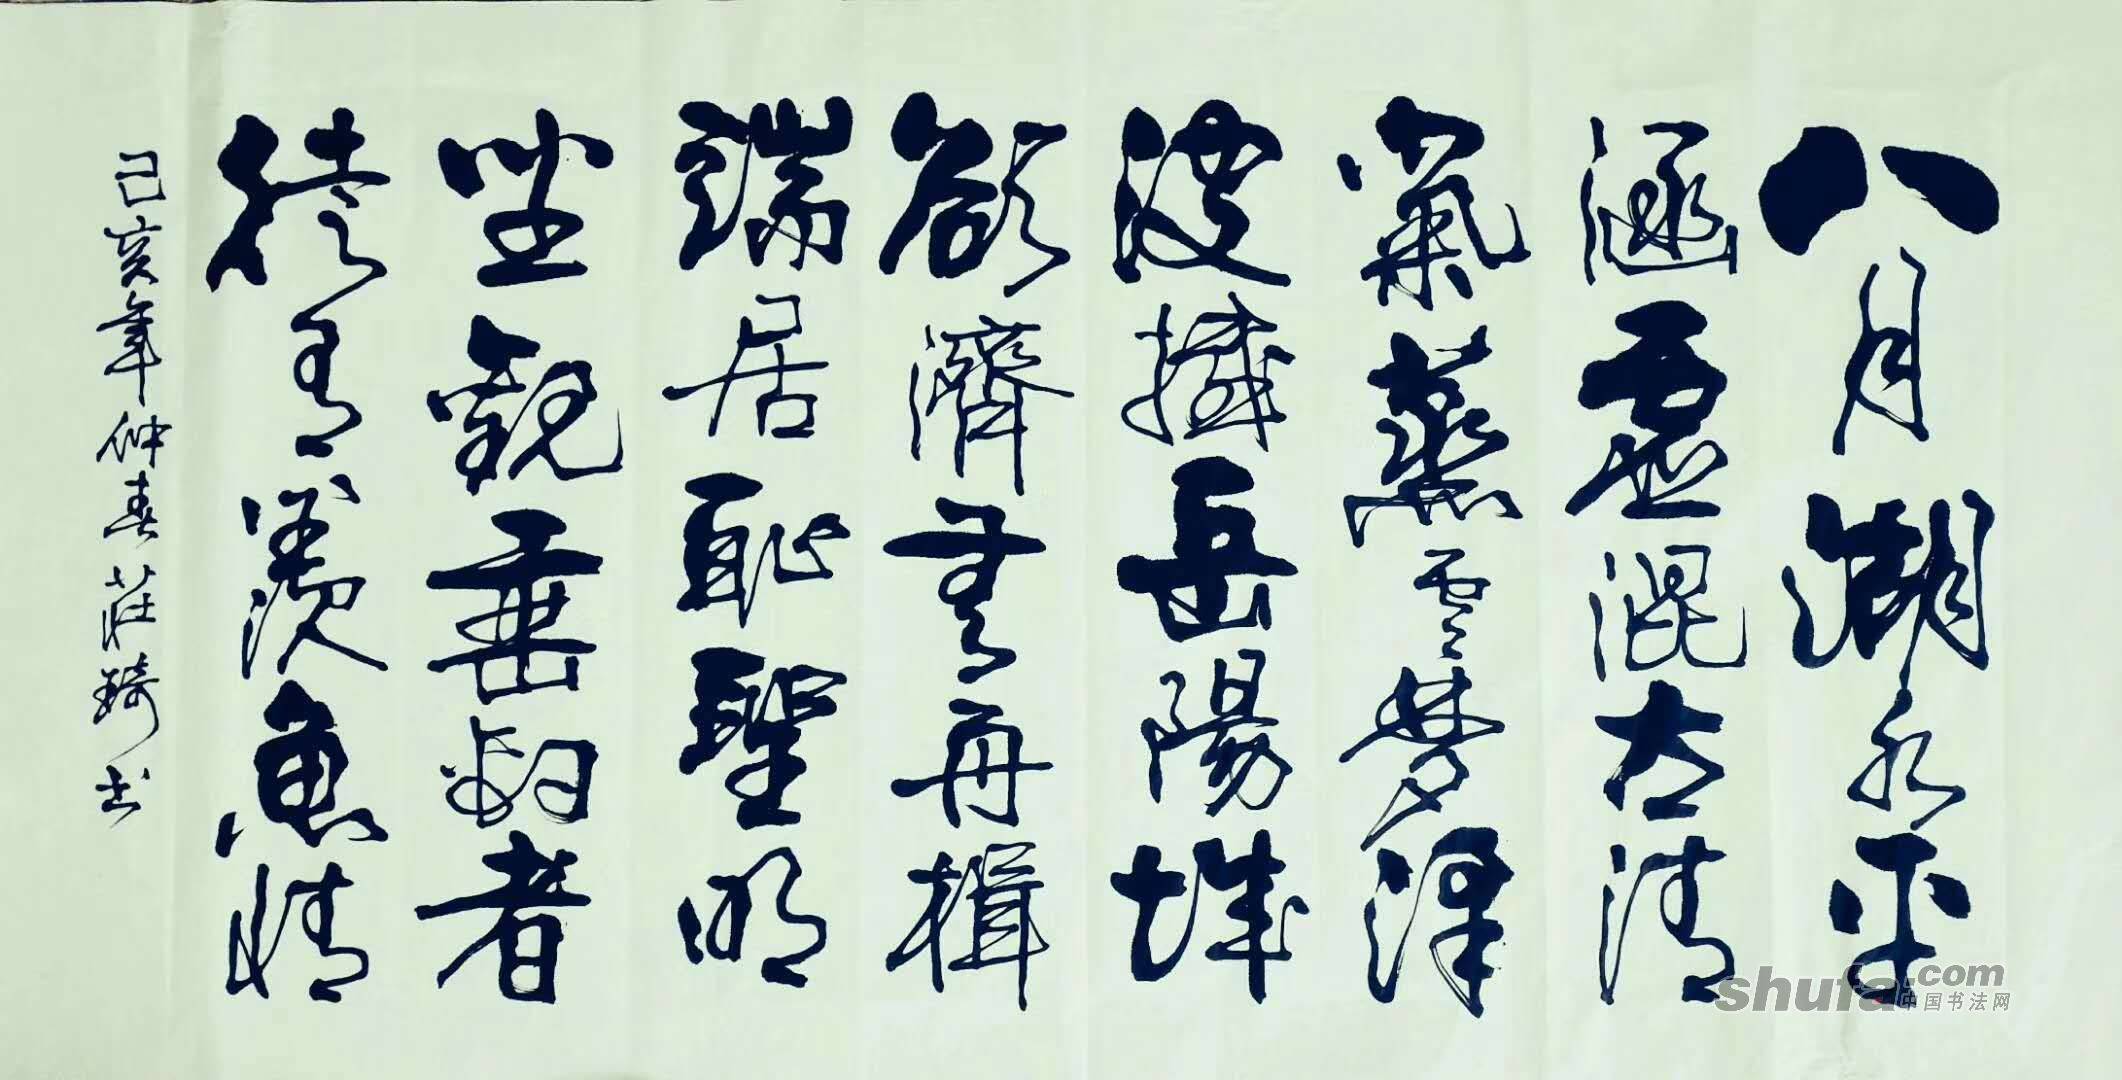 八月湖水平
涵虚混太清
氣蒸雲夢澤
波撼岳陽城
欲濟無舟楫
端居耻聖明
坐觀垂釣者
徒有羨魚情
己亥年仲春莊書
shufa.com
中国书法网